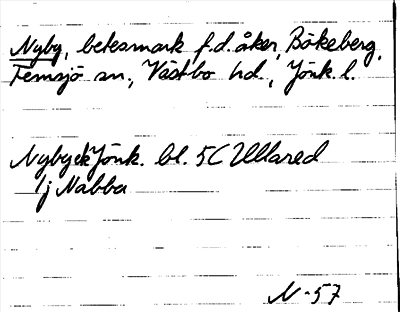 Nyby, betesmark f.d. åker, Bökeberg,
Femsjö sn., Västbo hd., Jönk. l.
Nyby ek Jönk. bl. 5C Ullared
1j Nabba
N-57